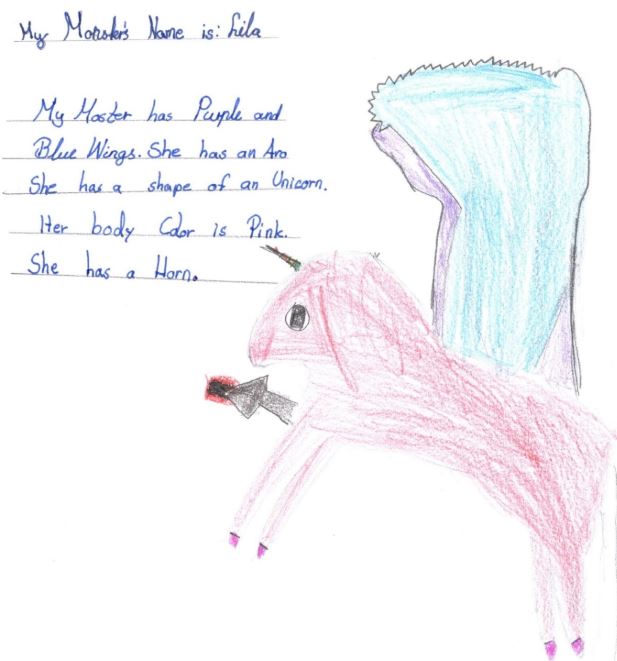 My Monster's Name is: Lila
My Moster has Purple and
Blue Wings. She has an Aro
She has a shape of an Unicorn.
Her body Color is Pink.
She has a Horn.